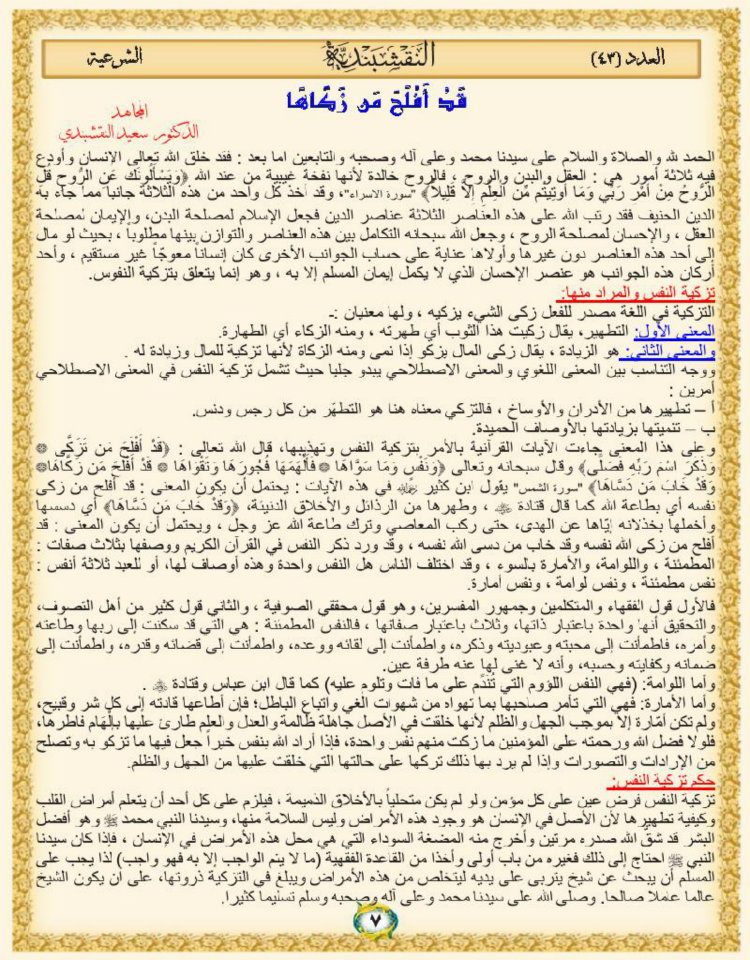 العدد (٤٣)
النقشبندية
الشرعية
قَدْ أَفْلَحَ مَن زَكَّاهَا
المجاهد
الدكتور سعيد النقشبندي
الحمد لله والصلاة والسلام على سيدنا محمد وعلى آله وصحبه والتابعين اما بعد : فقد خلق الله تعالى الإنسان وأودع
فيه ثلاثة أمور هي : العقل والبدن والروح ، فالروح خالدة لأنها نفخة غيبية من عند الله ﴿وَيَسْأَلُونَكَ عَنِ الرُّوحِ قُلِ
الرُّوحُ مِنْ أَمْرِ رَبِّي وَمَا أُوتِيتُم مِّنَ الْعِلْمِ إِلاَّ قَلِيلاً﴾ "سورة الاسراء"، وقد أخذ كل واحد من هذه الثلاثة جانباً مما جاء به
الدين الحنيف فقد رتب الله على هذه العناصر الثلاثة عناصر الدين فجعل الإسلام لمصلحة البدن، والإيمان لمصلحة
العقل ، والإحسان لمصلحة الروح ، وجعل الله سبحانه التكامل بين هذه العناصر والتوازن بينها مطلوباً ، بحيث لو مال
إلى أحد هذه العناصر دون غيرها وأولاها عناية على حساب الجوانب الأخرى كان إنساناً معوجّاً غير مستقيم ، وأحد
أركان هذه الجوانب هو عنصر الإحسان الذي لا يكمل إيمان المسلم إلا به ، وهو إنما يتعلق بتزكية النفوس.
تزكية النفس والمراد منها:
التزكية في اللغة مصدر للفعل زكى الشيء يزكيه ، ولها معنيان :ـ
المعنى الأول: التطهير، يقال زكيت هذا الثوب أي طهرته ، ومنه الزكاء أي الطهارة.
والمعنى الثاني: هو الزيادة ، يقال زكى المال يزكو إذا نمى ومنه الزكاة لأنها تزكية للمال وزيادة له .
ووجه التناسب بين المعنى اللغوي والمعنى الاصطلاحي يبدو جليا حيث تشمل تزكية النفس في المعنى الاصطلاحي
أمرين :
أ – تطهيرها من الأدران والأوساخ ، فالتزكي معناه هنا هو التطهّر من كل رجس ودنس.
ب – تنميتها بزيادتها بالأوصاف الحميدة.
وعلى هذا المعنى جاءت الآيات القرآنية بالأمر بتزكية النفس وتهذيبها، قال الله تعالى : ﴿قَدْ أَفْلَحَ مَن تَزَكَّى ۞
وَذَكَرَ اسْمَ رَبِّهِ فَصَلَّى﴾ وقال سبحانه وتعالى ﴿وَنَفْسٍ وَمَا سَوَّاهَا ۞ فَأَلْهَمَهَا فُجُورَهَا وَتَقْوَاهَا ۞ قَدْ أَفْلَحَ مَن زَكَّاهَا۞
وَقَدْ خَابَ مَن دَسَّاهَا﴾ "سورة الشمس" يقول ابن كثير في هذه الآيات : يحتمل أن يكون المعنى : قد أفلح من زكى
نفسه أي بطاعة الله كما قال قتادة ، وطهرها من الرذائل والأخلاق الدنيئة، ﴿وَقَدْ خَابَ مَن دَسَّاهَا﴾ أي دسسها
وأخملها بخذلانه إيّاها عن الهدى، حتى ركب المعاصي وترك طاعة الله عز وجل ، ويحتمل أن يكون المعنى : قد
أفلح من زكى الله نفسه وقد خاب من دسى الله نفسه ، وقد ورد ذكر النفس في القرآن الكريم ووصفها بثلاث صفات :
المطمئنة ، واللوامة، والأمارة بالسوء ، وقد اختلف الناس هل النفس واحدة وهذه أوصاف لها، أو للعبد ثلاثة أنفس :
نفس مطمئنة ، ونفس لوامة ، ونفس أمارة.
فالأول قول الفقهاء والمتكلمين وجمهور المفسرين، وهو قول محققي الصوفية ، والثاني قول كثير من أهل التصوف،
والتحقيق أنها واحدة باعتبار ذاتها، وثلاث باعتبار صفاتها ، فالنفس المطمئنة : هي التي قد سكنت إلى ربها وطاعته
وأمره، فاطمأنت إلى محبته وعبوديته وذكره، واطمأنت إلى لقائه ووعده، واطمأنت إلى قضائه وقدره، واطمأنت إلى
ضمانه وكفايته وحسبه، وأنه لا غنى لها عنه طرفة عين.
وأما اللوامة: (فهي النفس اللؤوم التي تُنَدِّم على ما فات وتلوم عليه) كما قال ابن عباس وقتادة .
وأما الأمارة: فهي التي تأمر صاحبها بما تهواه من شهوات الغي واتباع الباطل؛ فإن أطاعها قادته إلى كل شر وقبيح،
ولم تكن أمّارة إلا بموجب الجهل والظلم لأنها خلقت في الأصل جاهلة ظالمة والعدل والعلم طارئ عليها بإلهام فاطرها،
فلولا فضل الله ورحمته على المؤمنين ما زكت منهم نفس واحدة، فإذا أراد الله بنفس خيراً جعل فيها ما تزكو به وتصلح
من الإرادات والتصورات وإذا لم يرد بها ذلك تركها على حالتها التي خلقت عليها من الجهل والظلم.
حكم تزكية النفس:
تزكية النفس فرض عين على كل مؤمن ولو لم يكن متحلياً بالأخلاق الذميمة ، فيلزم على كل أحد أن يتعلم أمراض القلب
وكيفية تطهيرها لأن الأصل في الإنسان هو وجود هذه الأمراض وليس السلامة منها، وسيدنا النبي محمد ﷺ وهو أفضل
البشر قد شقّ الله صدره مرتين وأخرج منه المضغة السوداء التي هي محل هذه الأمراض في الإنسان ، فإذا كان سيدنا
النبي ﷺ احتاج إلى ذلك فغيره من باب أولى وأخذا من القاعدة الفقهية (ما لا يتم الواجب إلا به فهو واجب) لذا يجب على
المسلم أن يبحث عن شيخ يتربى على يديه ليتخلص من هذه الأمراض ويبلغ في التزكية ذروتها، على أن يكون الشيخ
عالما عاملا صالحا. وصلى الله على سيدنا محمد وعلى آله وصحبه وسلم تسليما كثيرا.
٧